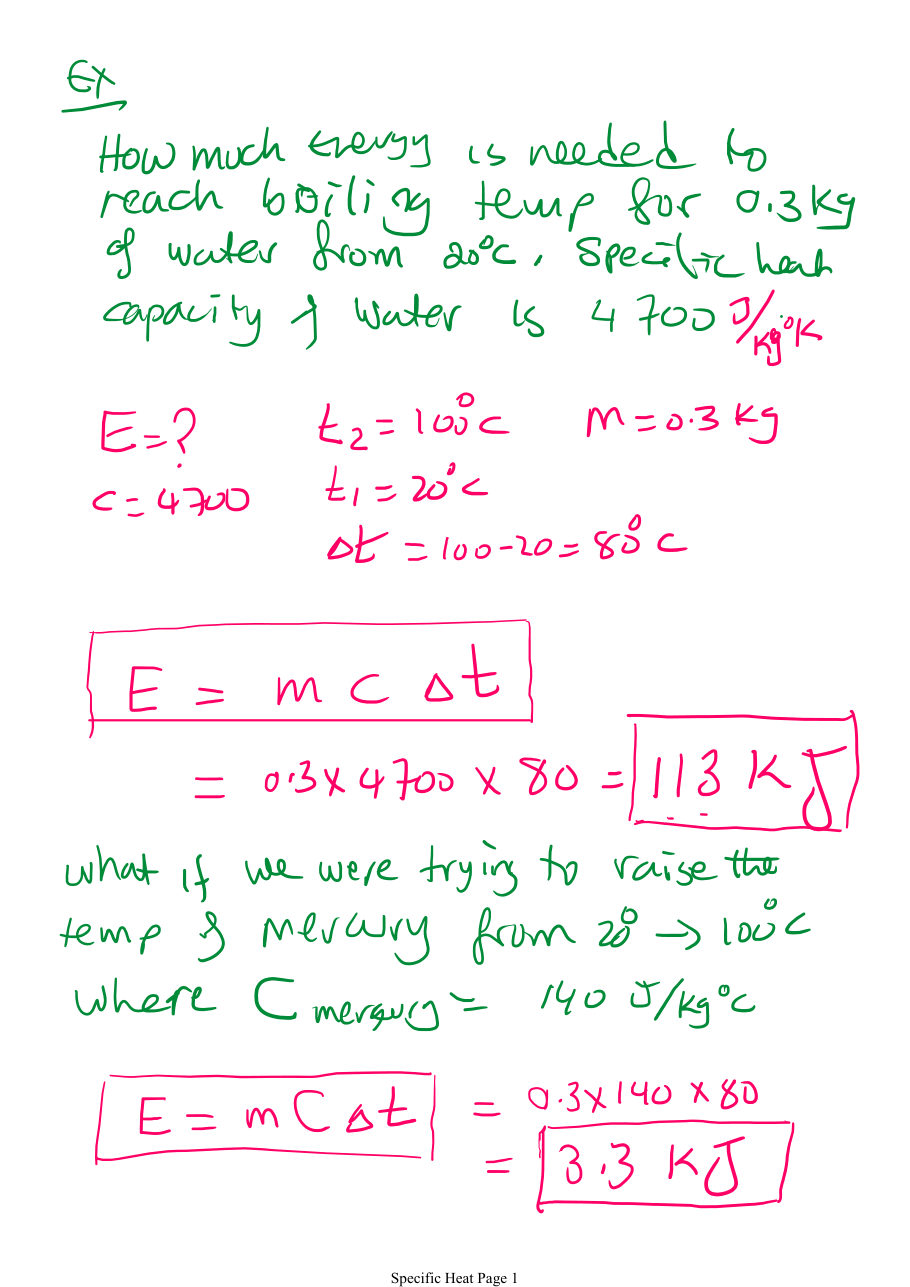 Ex
How much energy is needed to
reach boiling temp for 0.3 kg
of water from 20°C, Specific heat
capacity of Water is 4700 J/kg°K
E=? t₂ = 100°C m = 0.3 kg
C = 4700 t₁ = 20°C
Δt = 100-20 = 80°C
E = m C Δt
= 0.3 x 4700 x 80 = 113 KJ
what if we were trying to raise the
temp of mercury from 20° → 100°C
where C mercury = 140 J/kg°C
E = m C Δt = 0.3 x 140 x 80
= 3.3 KJ
Specific Heat Page 1